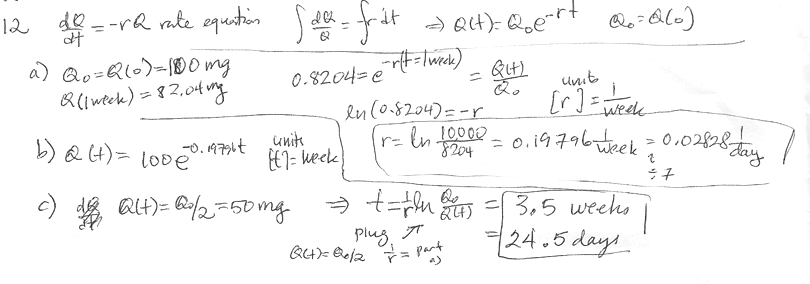 12 dQ/dt = -rQ rate equation ∫ dQ/Q = ∫-r dt ⇒ Q(t) = Q₀e^(-rt) Q₀ = Q(0)
a) Q₀ = Q(0) = 100 mg 0.8204 = e^(-r(t=1week)) = Q(t)/Q₀ units [r] = 1/week
Q(1week) = 82.04mg
ln(0.8204) = -r
r = ln 10000/8204 = 0.19796 1/week = 0.02828 1/day
÷7
b) Q(t) = 100e^(-0.19796t) units [t] = week
c) Q(t) = Q₀/2 = 50mg ⇒ t = 1/r ln Q₀/Q(t) = 3.5 weeks
= 24.5 days
plug ↗
Q(t) = Q₀/2 1/r = part a)